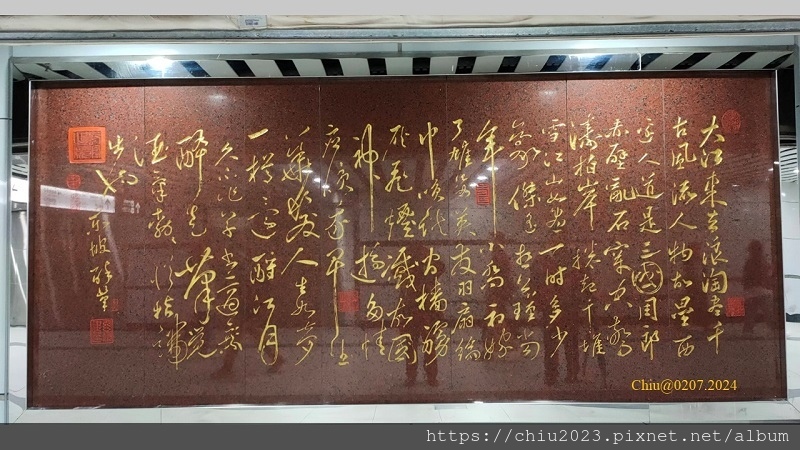 大江東去浪淘盡千
古風流人物故壘西
邊人道是三國周郎
赤壁亂石穿空驚
濤拍岸捲起千堆
雪江山如畫一時多少
豪傑遙想公瑾當
年小喬初嫁
了雄姿英發羽扇綸
巾談笑間檣艣
灰飛煙滅故國
神遊多情
應笑我早生
華髮人生如夢
一樽還酹江月
久不作草書適乘
醉走筆覺
酒氣勃勃從指端
出也
東坡醉筆
Chiu@0207.2024
https://chiu2023.pixnet.net/album